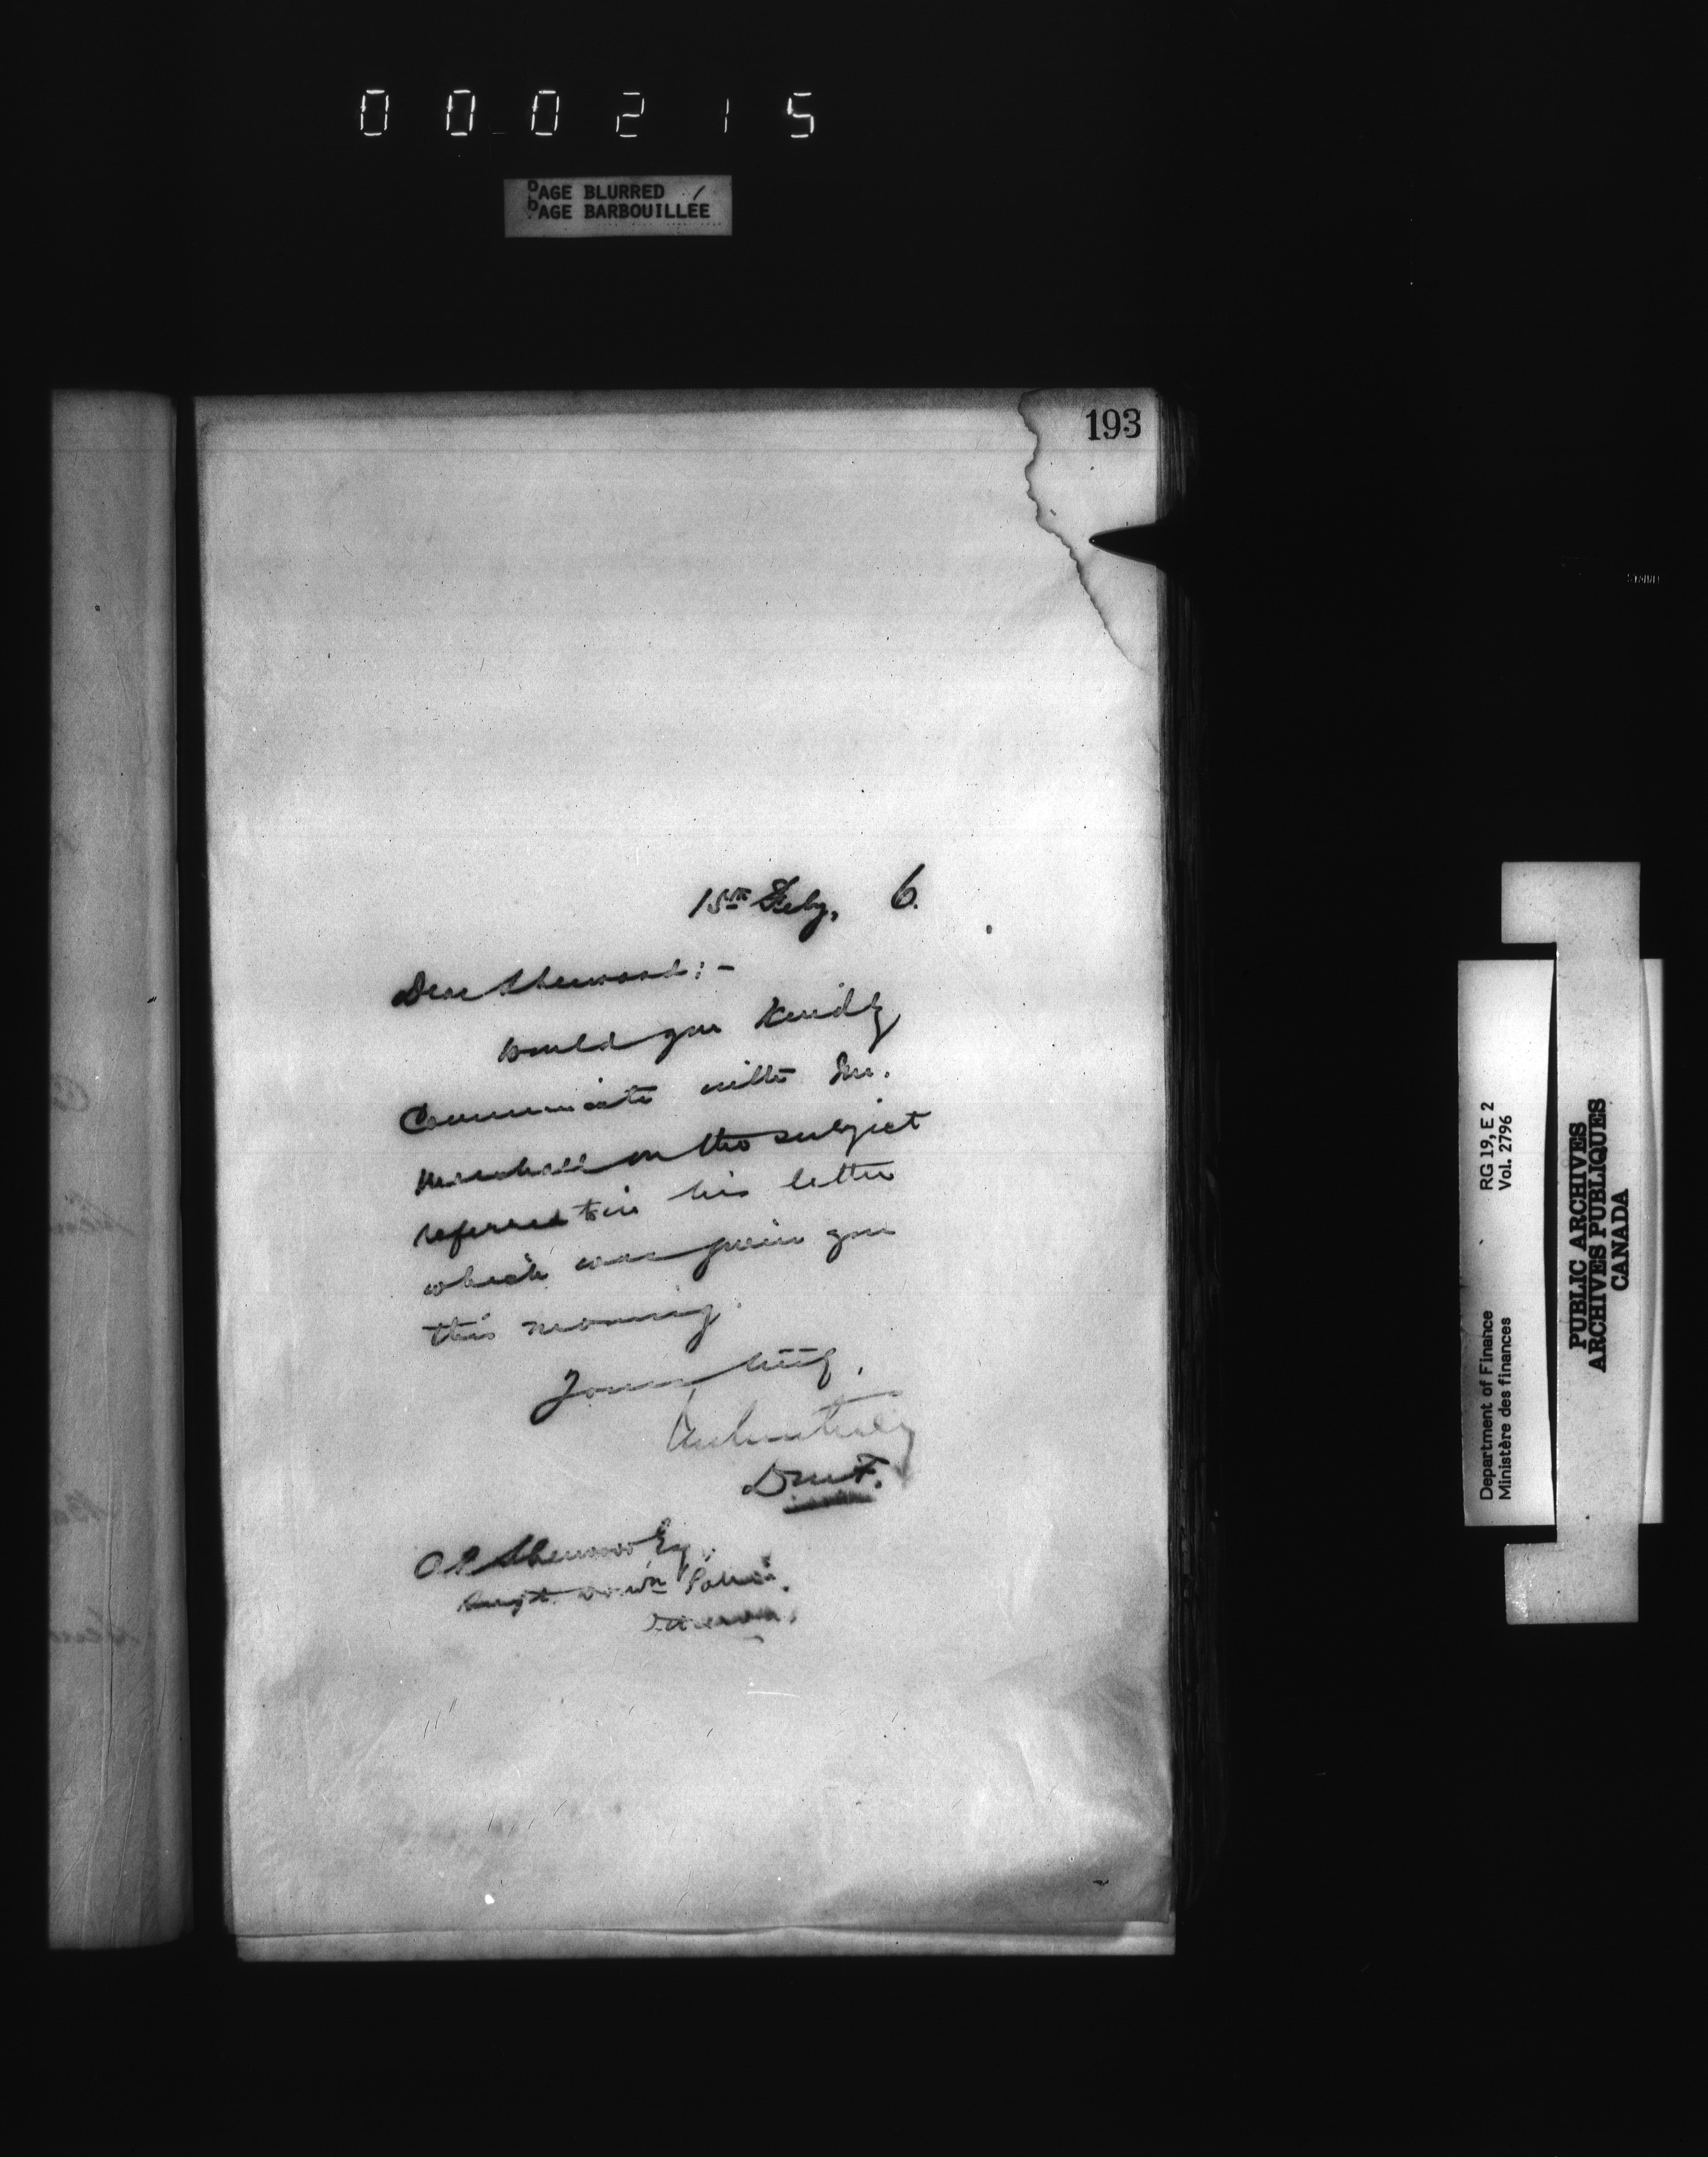 000215
PAGE BLURRED
PAGE BARBOUILLÉE
193
15th Feby, 6.
Dear Sherwood:-
Would you kindly
Communicate with Mr.
Marshall on the subject
referred to in his letter
which was given you
this morning.
Yours truly,
D.M.F.
A P Sherwood Esq,
Supt. Domn Police.
Ottawa.
RG 19, E 2
Vol. 2796
Department of Finance
Ministère des finances
PUBLIC ARCHIVES
ARCHIVES PUBLIQUES
CANADA